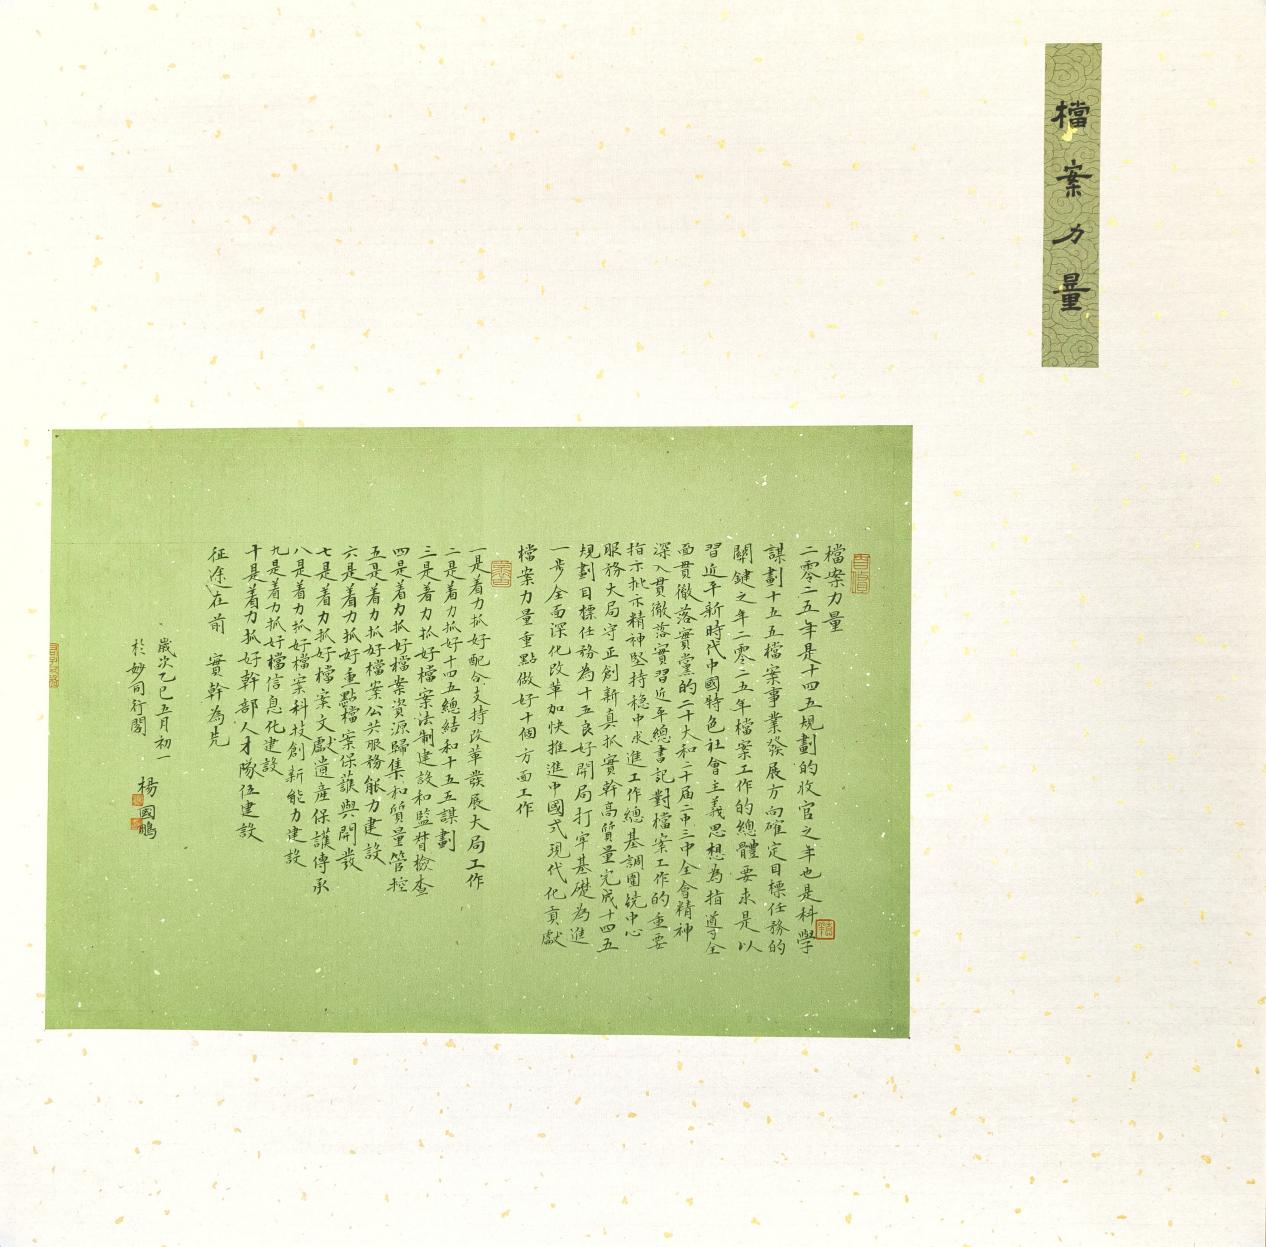 檔案力量
檔案力量
二零二五年是十四五規劃的收官之年也是科學
謀劃十五五檔案事業發展方向確定目標任務的
關鍵之年二零二五年檔案工作的總體要求是以
習近平新時代中國特色社會主義思想為指導全
面貫徹落實黨的二十大和二十屆二中三中全會精神
深入貫徹落實習近平總書記對檔案工作的重要
指示批示精神堅持穩中求進工作總基調圍繞中心
服務大局守正創新真抓實幹高質量完成十四五
規劃目標任務為十五五良好開局打牢基礎為進
一步全面深化改革加快推進中國式現代化貢獻
檔案力量重點做好十個方面工作
一是着力抓好配合支持改革發展大局工作
二是着力抓好十四五總結和十五五謀劃
三是着力抓好檔案法制建設和監督檢查
四是着力抓好檔案資源歸集和質量管控
五是着力抓好檔案公共服務能力建設
六是着力抓好重點檔案保護與開發
七是着力抓好檔案文獻遺產保護傳承
八是着力抓好檔案科技創新能力建設
九是着力抓好檔信息化建設
十是着力抓好幹部人才隊伍建設
征途在前 實幹為先
歲次乙巳五月初一
於妙司行閣 楊國鵬